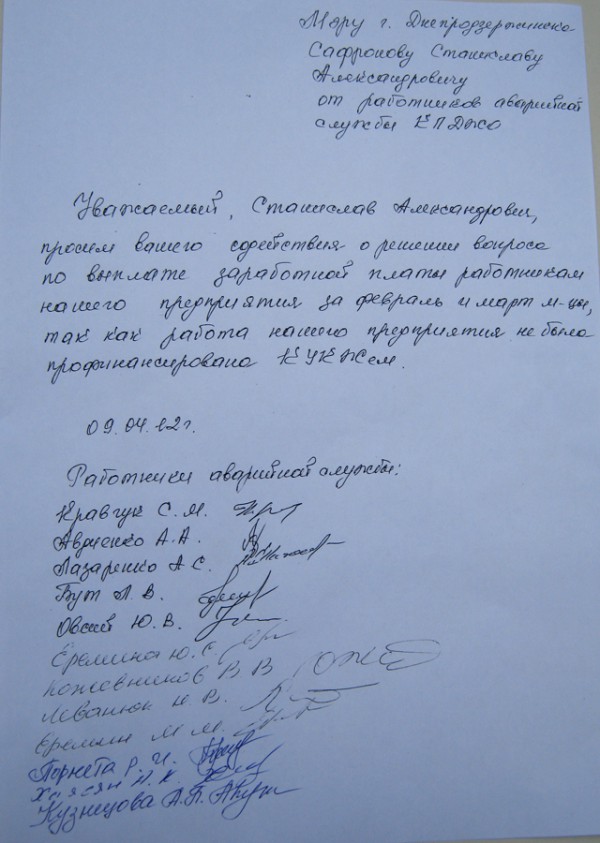 Мэру г. Днепродзержинска
Сафронову Станиславу
Александровичу
от работников аварийной
службы КП ДЖО
Уважаемый, Станислав Александрович,
просим вашего содействия о решении вопроса
по выплате заработной платы работникам
нашего предприятия за февраль и март м-цы,
так как работа нашего предприятия не была
профинансирована КУКЖем.
09.04.12г.
Работники аварийной службы:
Кравчук С.М.
Авдиенко А.А.
Лазаренко А.С.
Бут Л.В.
Овсий Ю.В.
Еремина Ю.С.
Кожевников В В
Леванюк Н.В.
Еремин М М.
Порнета Р. И.
Н.К.
Кузнецова А.П.